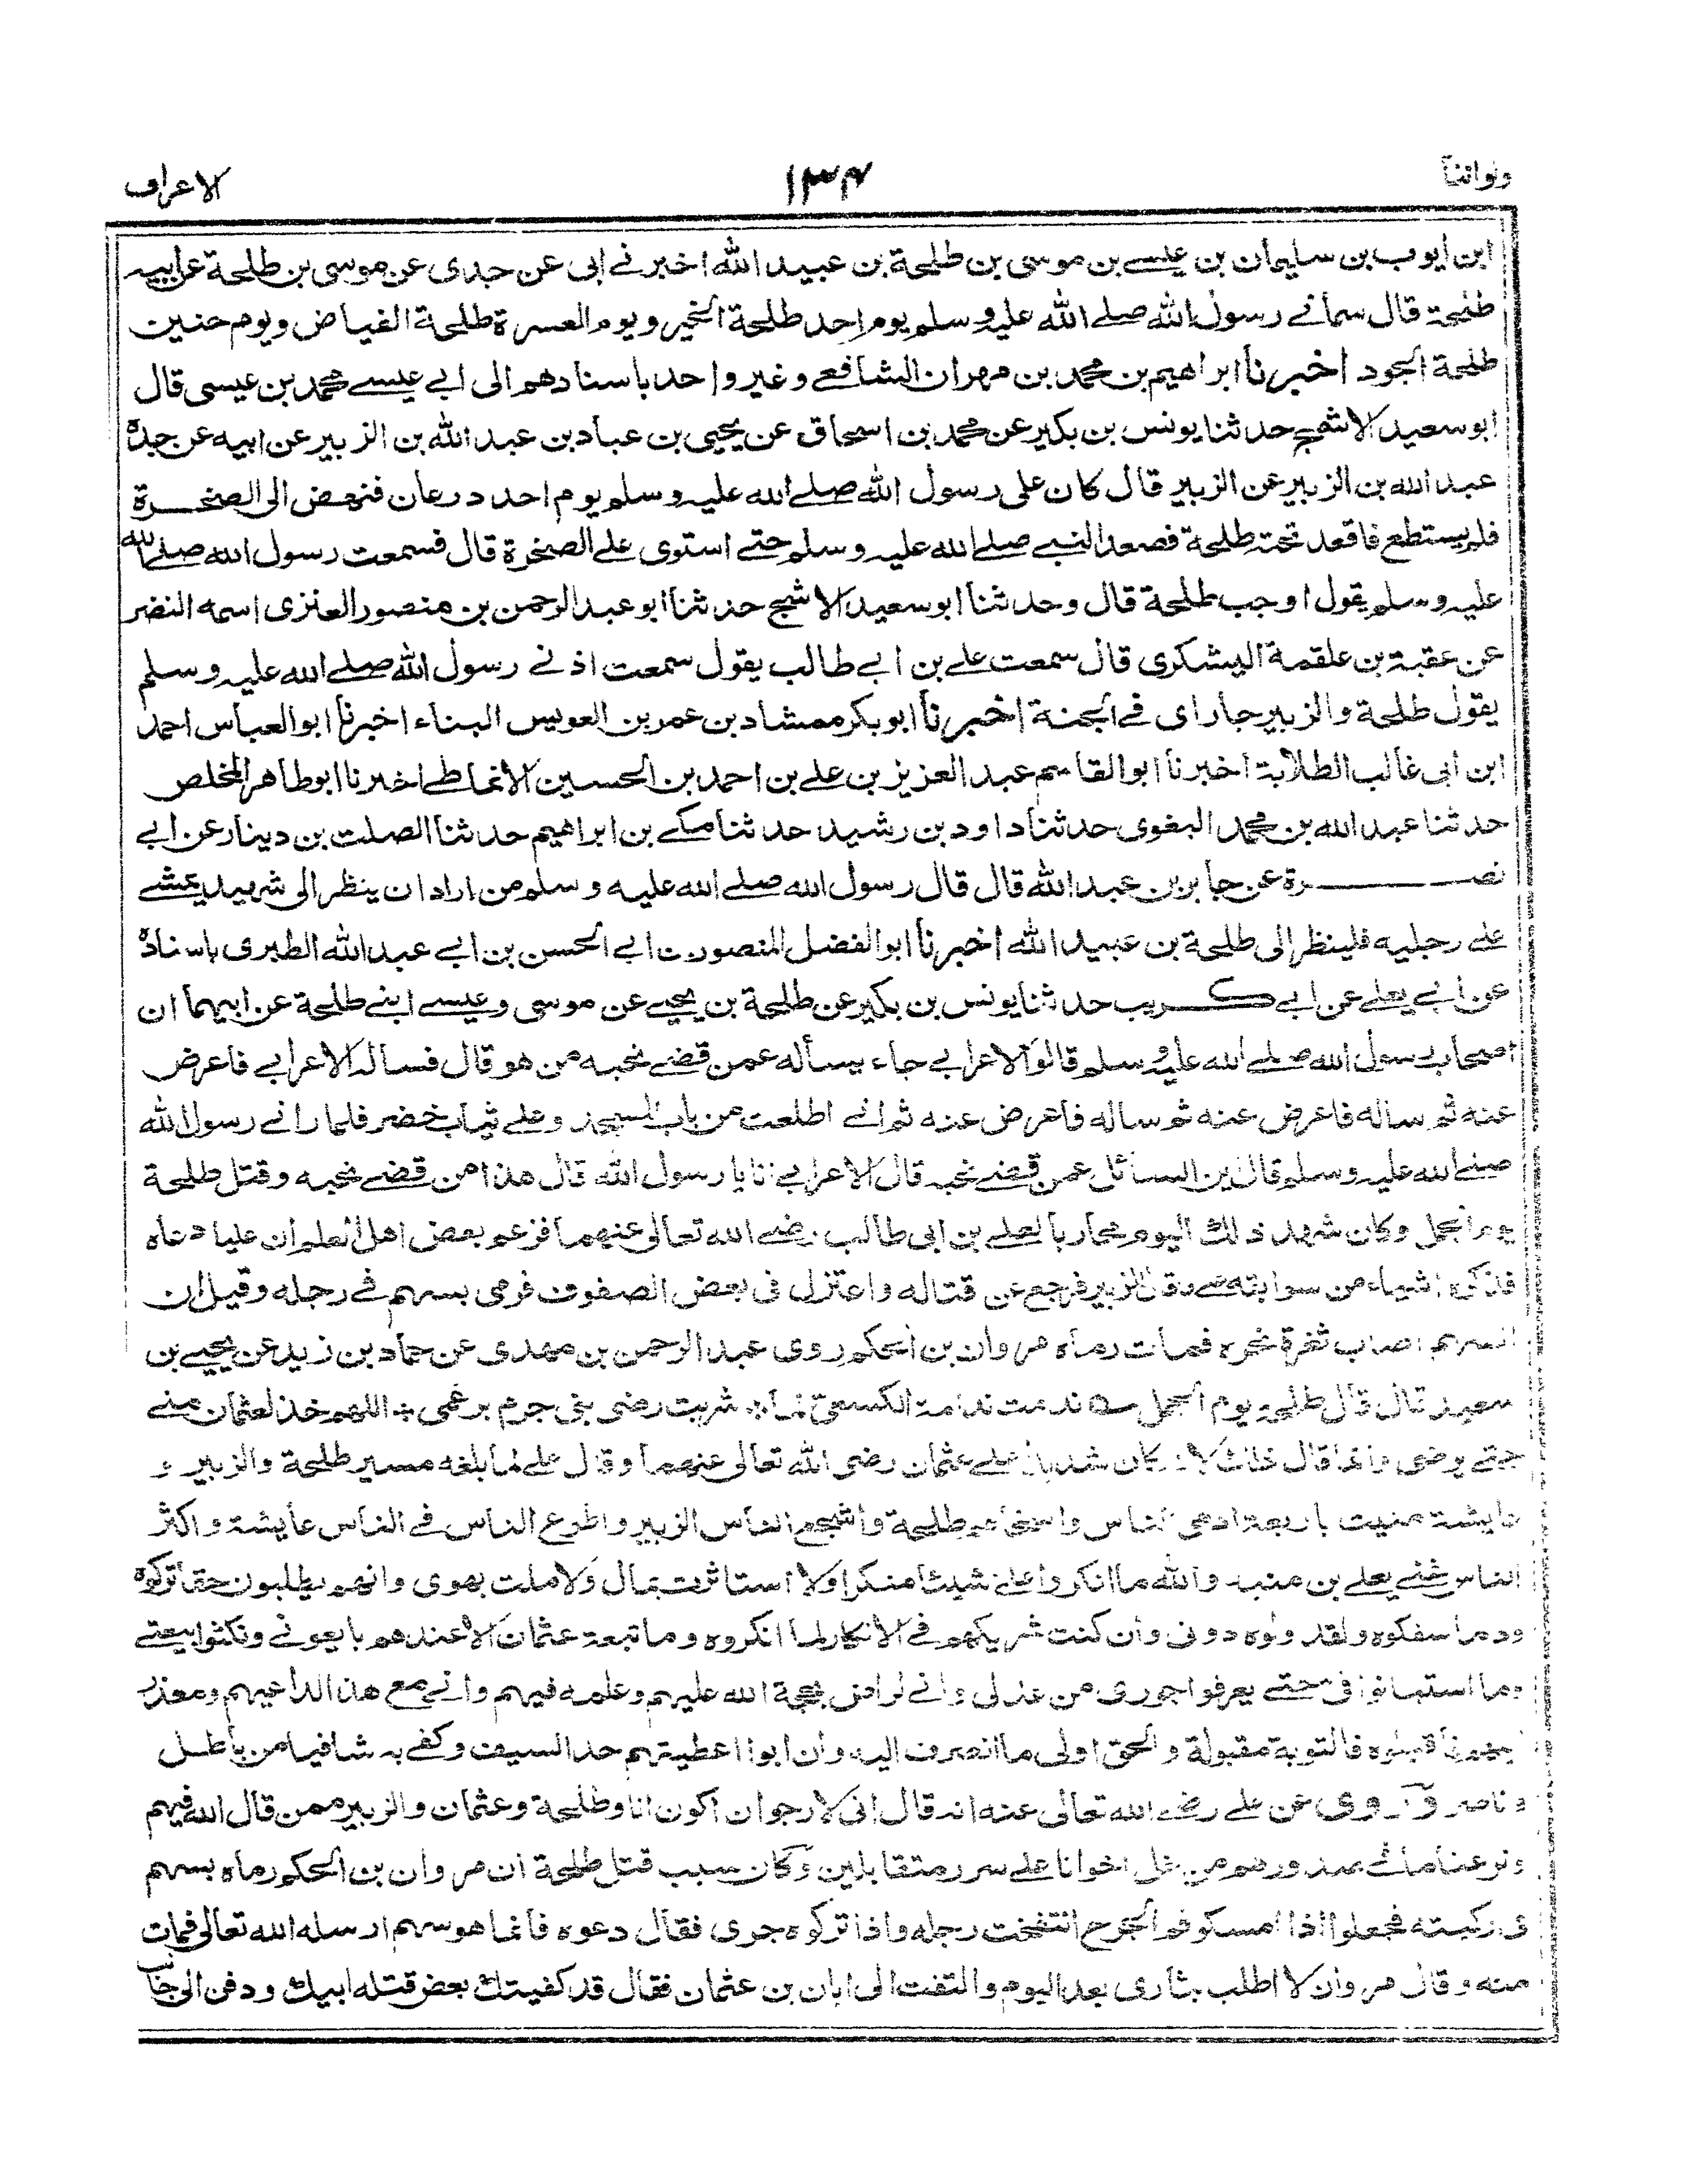 ولواننا
١٣٤
الاعراف
ابن ايوب بن سليمان بن عيسے بن موسى بن طلحة بن عبيد الله اخبرنے ابى عن جدى عن موسى بن طلحة عن ابيه
طلحة قال سمانے رسول الله صلے الله عليه وسلم يوم احد طلحة الخير ويوم العسرة طلحة الفياض ويوم حنين
طلحة الجود اخبرنا ابراهيم بن محمد بن مهران الشافعے وغير واحد باسنادهم الى ابے عيسے محمد بن عيسى قال
ابوسعيد الاشج حدثنا يونس بن بكير عن محمد بن اسحاق عن يحيى بن عباد بن عبد الله بن الزبير عن ابيه عن جده
عبد الله بن الزبير عن الزبير قال كان على رسول الله صلے الله عليه وسلم يوم احد درعان فنهض الى الصخرة
فلم يستطع فاقعد تحته طلحة فصعد النبے صلے الله عليه وسلم حتے استوى علے الصخرة قال فسمعت رسول الله صلے الله
عليه وسلم يقول اوجب طلحة قال وحدثنا ابوسعيد الاشج حدثنا ابو عبد الرحمن بن منصور العنزى اسمه النضر
عن عقبة بن علقمة اليشكرى قال سمعت علے بن ابے طالب يقول سمعت اذنے رسول الله صلے الله عليه وسلم
يقول طلحة والزبير جاراى فے الجنة اخبرنا ابوبكر ممشاد بن عمر بن العويس البناء اخبرنا ابوالعباس احمد
ابن ابى غالب الطلابة اخبرنا ابوالقاسم عبد العزيز بن علے بن احمد بن الحسين الانماطے اخبرنا ابوطاهر المخلص
حدثنا عبد الله بن محمد البغوى حدثنا داود بن رشيد حدثنا مكے بن ابراهيم حدثنا الصلت بن دينار عن ابے
نضرة عن جابر بن عبد الله قال قال رسول الله صلے الله عليه وسلم من اراد ان ينظر الى شهيد يمشے
علے رجليه فلينظر الى طلحة بن عبيد الله اخبرنا ابوالفضل المنصور بن ابے الحسن بن ابے عبد الله الطبرى باسناده
عن ابے يعلے عن ابے كريب حدثنا يونس بن بكير عن طلحة بن يحيے عن موسى وعيسے ابنے طلحة عن ابيهما ان
اصحاب رسول الله صلے الله عليه وسلم قالوا لاعرابے جاء يسأله عمن قضے نحبه من هو قال فساله الاعرابے فاعرض
عنه ثم ساله فاعرض عنه ثم ساله فاعرض عنه ثم انے اطلعت من باب المسجد وعلے ثياب خضر فلما رانے رسول الله
صلے الله عليه وسلم قال اين السائل عمن قضے نحبه قال الاعرابے انا يا رسول الله قال هذا من قضے نحبه وقتل طلحة
يوم الجمل وكان شهد ذلك اليوم محاربا لعلے بن ابى طالب رضے الله تعالى عنهما فزعم بعض اهل العلم ان عليا دعاه
فذكره اشياء من سوابقه فرجع عن قتاله واعتزل فى بعض الصفوف فرمى بسهم فے رجله وقيل ان
السهم اصاب ثغرة نحره فمات رماه مروان بن الحكم روى عبد الرحمن بن مهدى عن حماد بن زيد عن يحيے بن
سعيد قال قال طلحة يوم الجمل ندمت ندامة الكسعى لما شربت رضى بنى جرم برغمى اللهم خذ لعثمان منے
حتے يرضى وانما قال ذلك لانه كان شديدا علے عثمان رضى الله تعالى عنهما وقال علے لما بلغه مسير طلحة والزبير و
عايشة منيت باربعة ادهى الناس واسخاهم طلحة واشجع الناس الزبير واطوع الناس فے الناس عايشة واكثر
الناس غنے يعلے بن منبه والله ما انكروا علے شيئا منكرا ولا استاثرت بمال ولا ملت بهوى وانهم يطلبون حقا تركوه
ودما سفكوه ولقد ولوه دونى وان كنت شريكهم فے الانكار لما انكروه وما تبعة عثمان الا عندهم بايعونے ونكثوا بيعتے
وما استبانوا فى حتے يعرفوا جورى من عدلى وانے لراض بحجة الله عليهم وعلمه فيهم وانے مع هذا لداعيهم ومعذر
اليهم فان قبلوه فالتوبة مقبولة والحق اولى ما انصرف اليه وان ابوا اعطيتهم حد السيف وكفے به شافيا من باطل
وناصر وروى عن علے رضے الله تعالى عنه انه قال انى لارجو ان اكون انا وطلحة وعثمان والزبير ممن قال الله فيهم
ونزعنا ما فے صدورهم من غل اخوانا علے سرر متقابلين وكان سبب قتل طلحة ان مروان بن الحكم رماه بسهم
فى ركبته فجعلوا اذا امسكوا فم الجرح انتفخت رجله واذا تركوه جرى فقال دعوه فانما هو سهم ارسله الله تعالى فمات
منه وقال مروان لا اطلب بثارى بعد اليوم والتفت الى ابان بن عثمان فقال قد كفيتك بعض قتلة ابيك ودفن الى جانب